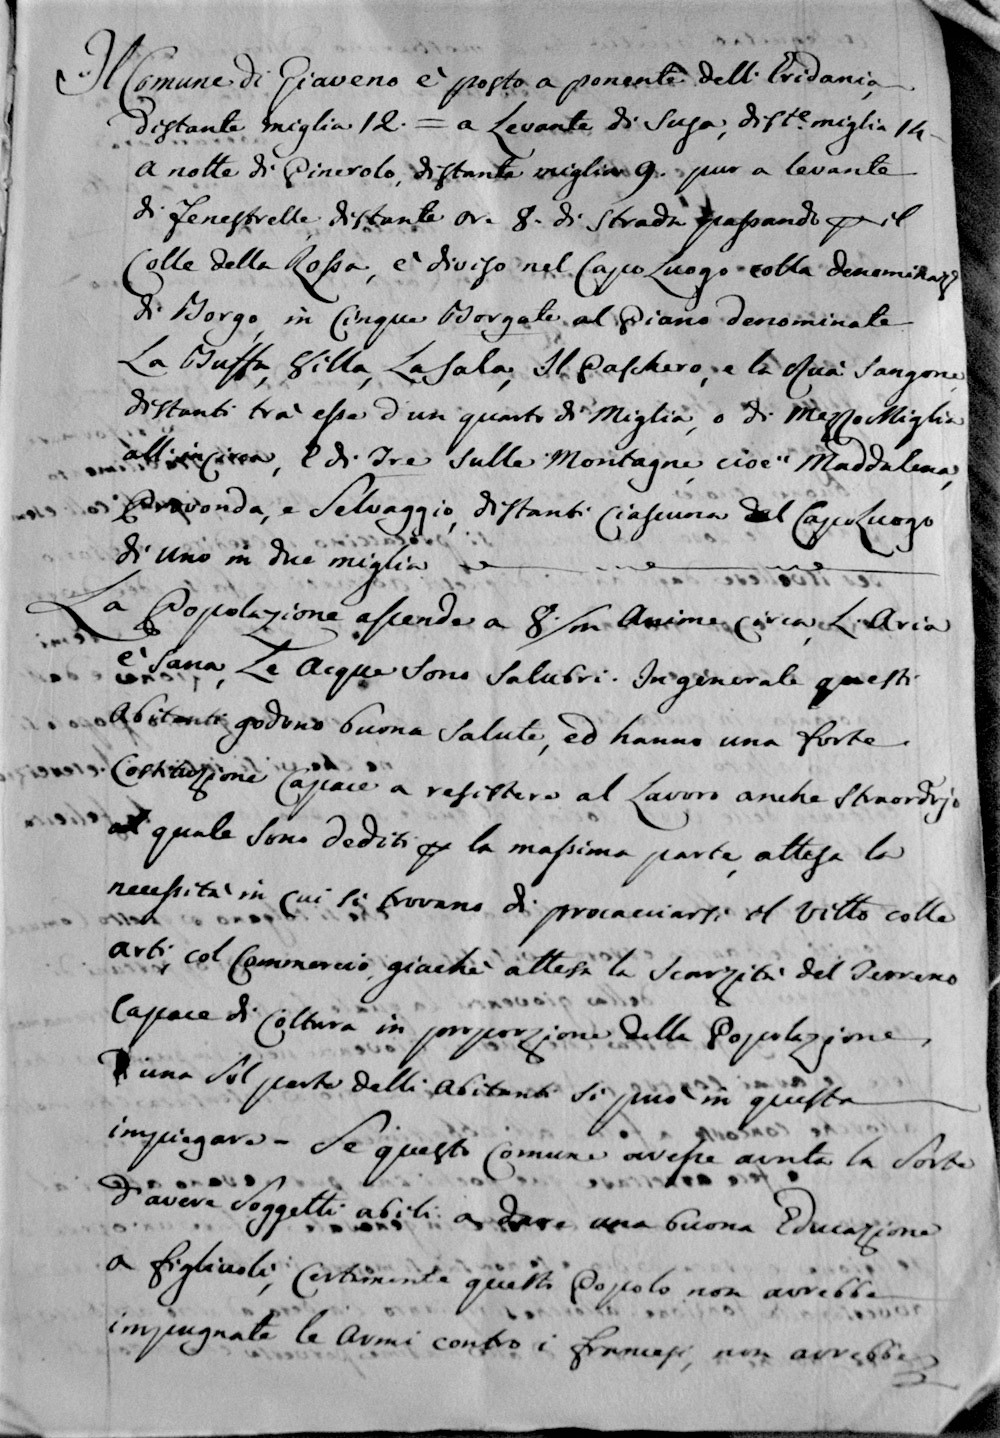 Il Comune di Giaveno è posto a ponente dell' Eridania,
distante miglia 12. = a Levante di Susa, dist.e miglia 14
a notte di Pinerolo, distante miglia 9. pur a levante
di Fenestrelle distante or. 8. di strada passando p il
Colle della Rossa, è diviso nel CapoLuogo colla
di Borgo, in Cinque Borgate al Piano denominate
La Buffa, Villa, La Sala, Il Paschero, e la Ruà Sangone,
distanti trà esse d'un quarto di Miglia, o di Mezzo Miglia
all'incirca, e di Tre sulle Montagne, cioè Maddalena,
Provonda, e Selvaggio, distanti Ciascuna dal CapoLuogo
di uno in due miglia
La Popolazione assende a 8/m Anime circa, L'Aria
è Sana, Le Acque sono salubri. In generale questi
Abitanti godono buona salute, ed hanno una forte
Costituzione Capace a resistere al Lavoro anche
al quale sono dediti p la massima parte, attesa la
necessità in cui si trovano di procacciarsi il Vitto colle
arti, col Commercio, giachè attesa la scarzità del Terreno
Capace di Coltura in proporzione della Popolazione,
una sol parte delli abitanti si può in questa
impiegare - Se questo Comune avesse avuta la sorte
d'avere Soggetti abili a dare una buona Educazione
a figliuoli, Certamente questo Popolo non avrebbe
impugnate le Armi contro i francesi, non avrebbe